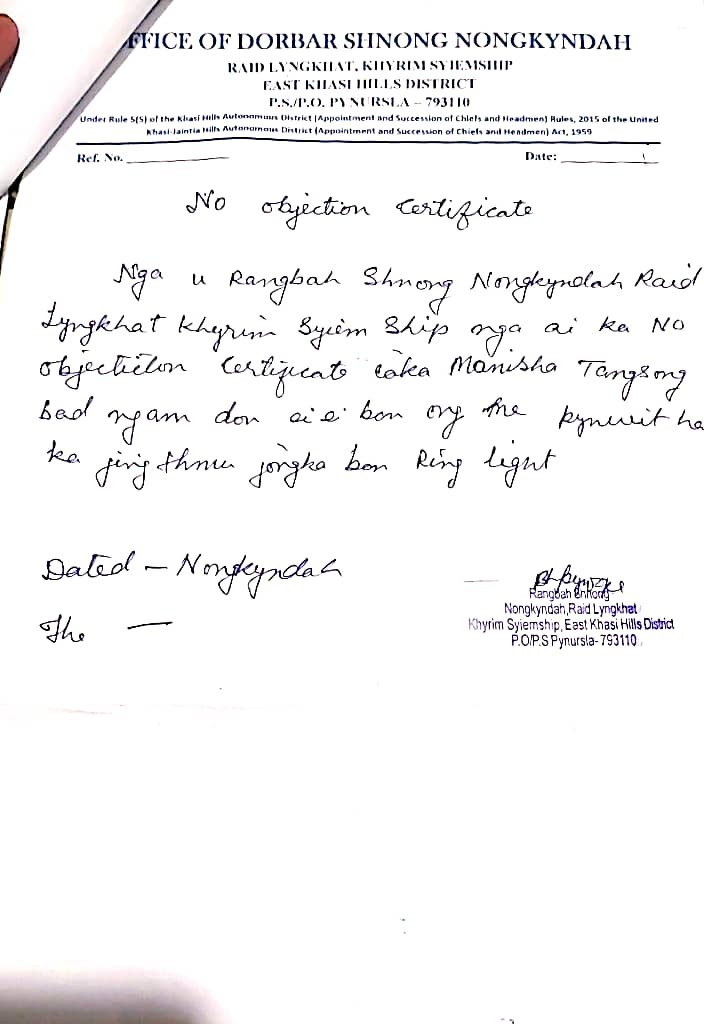 FFICE OF DORBAR SHNONG NONGKYNDAH
RAID LYNGKHAT, KHYRIM SYIEMSHIP
EAST KHASI HILLS DISTRICT
P.S./P.O. PYNURSLA – 793110
Under Rule 5(5) of the Khasi Hills Autonomous District (Appointment and Succession of Chiefs and Headmen) Rules, 2015 of the United
Khasi-Jaintia Hills Autonomous District (Appointment and Succession of Chiefs and Headmen) Act, 1959
Ref. No. Date:
No objection Certificate
Nga u Rangbah Shnong Nongkyndah Raid
Lyngkhat Khyrim Syiem Ship nga ai ka No
Certificate Manisha Tangsong
bad ngam don ei ei ban
ka jingthmu jongka ban Ring light
Dated – Nongkyndah
The —
Rangbah Shnong
Nongkyndah, Raid Lyngkhat
Khyrim Syiemship, East Khasi Hills District
P.O/P.S Pynursla-793110